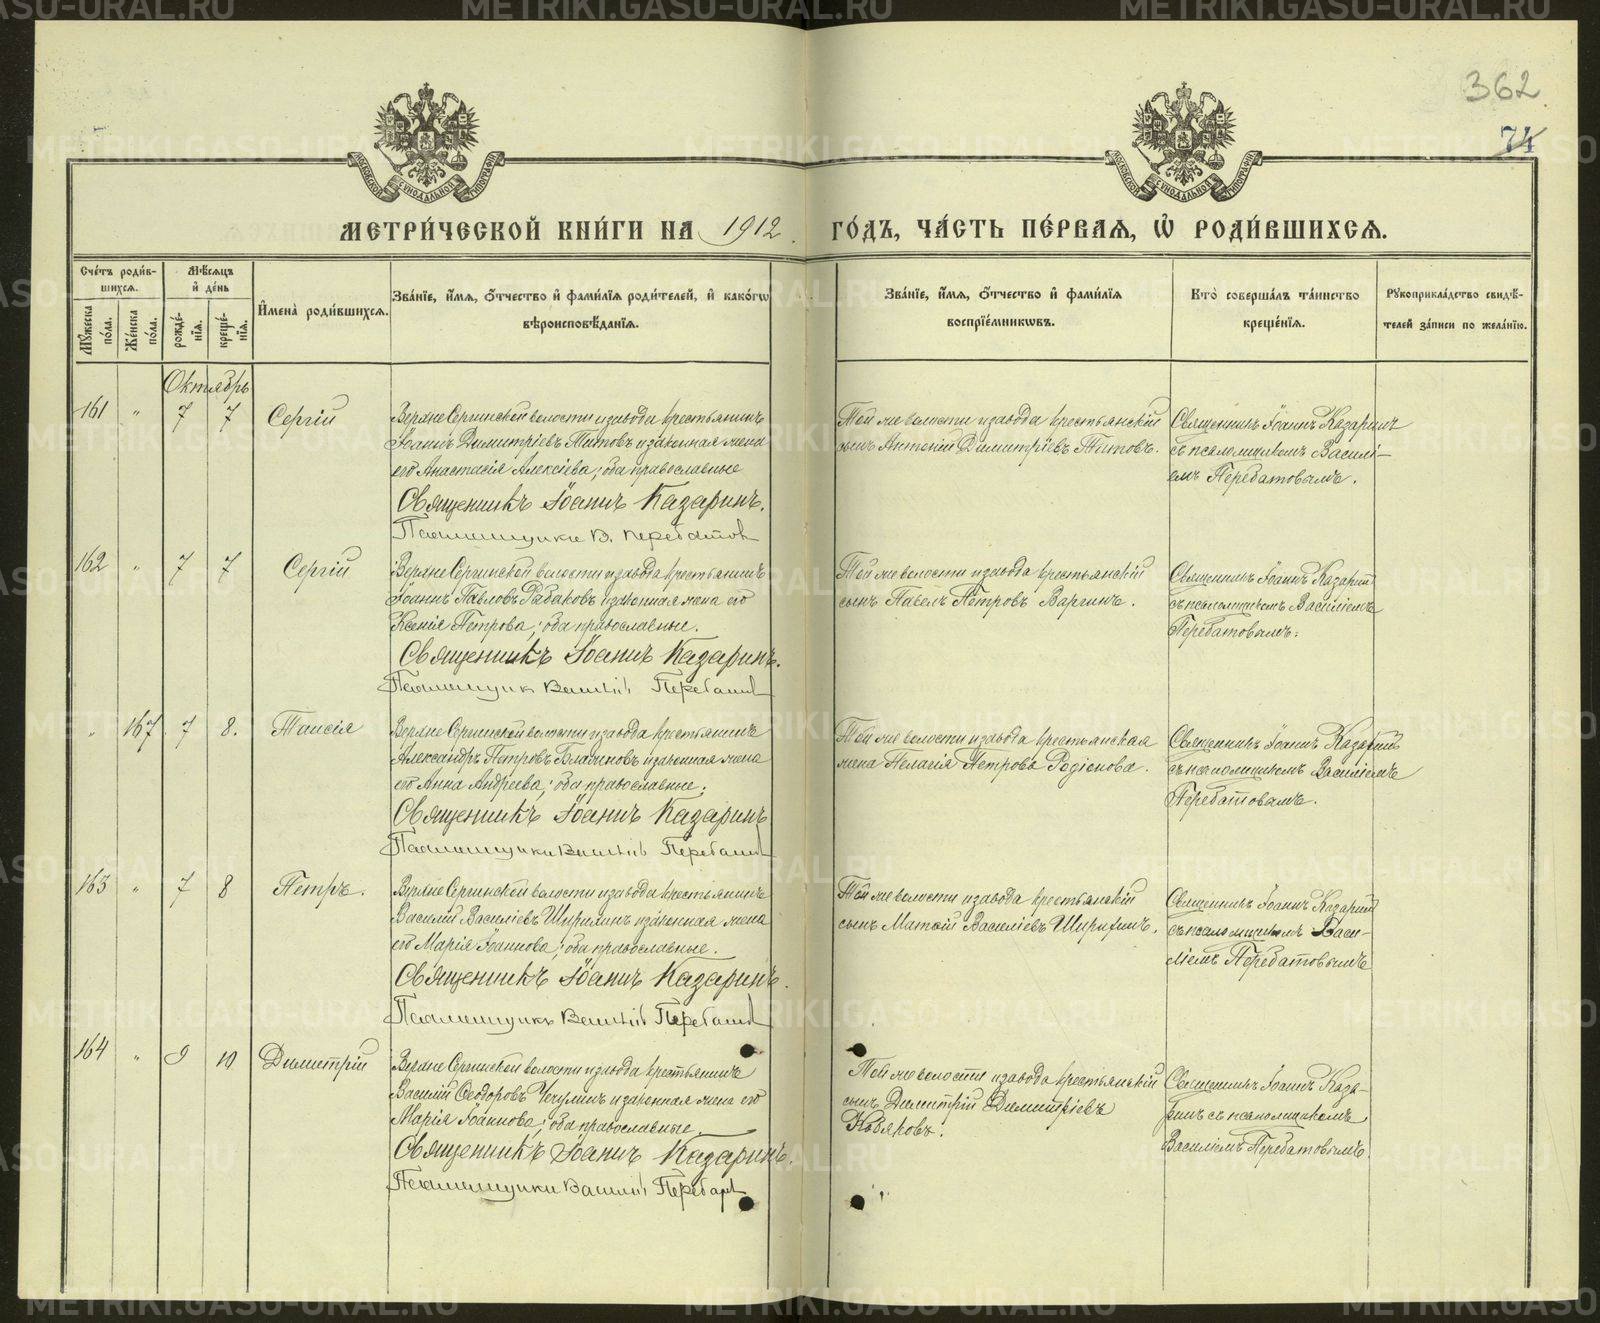 METRIKI.GASO-URAL.RU
362
74
МОСКОВСКОЙ СѴНОДАЛЬНОЙ ТИПОГРАФІИ
МОСКОВСКОЙ СѴНОДАЛЬНОЙ ТИПОГРАФІИ
МЕТРИ́ЧЕСКОЙ КНИ́ГИ НА 1912 ГО́ДЪ, ЧА́СТЬ ПЕ́РВАѦ, Ѽ РОДИ́ВШИХСѦ.
Сче́тъ роди́в-
шихсѧ.
Мꙋжеска по́ла.
Же́нска по́ла.
Мѣ́сѧцъ
и҆ де́нь
рожде́-нїѧ.
креще́-нїѧ.
И҆мена̀ роди́вшихсѧ.
Зва́нїе, и҆́мѧ, ѻ҆́тчество и҆ фами́лїѧ роди́телей, и҆ како́гѡ
вѣроисповѣ́данїѧ.
Зва́нїе, и҆́мѧ, ѻ҆́тчество и҆ фами́лїѧ
воспрїе́мникѡвъ.
Кто̀ соверша́лъ та́инство
креще́нїѧ.
Рꙋкоприкла́дство свидѣ́-
телей за́писи по жела́нїю.
Октябрь
161 " 7 7 Сергій
Верхне Сергинской волости и завода крестьянинъ
Іоаннъ Димитріевъ Титовъ и законная жена
его Анастасія Алексіева; оба православные
Священникъ Іоаннъ Казаринъ.
Псаломщикъ В. Перебатов
Той же волости и завода крестьянскій
сынъ Антоній Димитріевъ Титовъ.
Священникъ Іоаннъ Казаринъ
съ псаломщикомъ Василі-
емъ Перебатовымъ.
162 " 7 7 Сергій
Верхне Сергинской волости и завода крестьянинъ
Іоаннъ Павловъ и законная жена его
Ксенія Петрова; оба православные.
Священникъ Іоаннъ Казаринъ.
Псаломщик Василій Перебатов
Той же волости и завода крестьянскій
сынъ Павелъ Петровъ Варгинъ.
Священникъ Іоаннъ Казаринъ
съ псаломщикомъ Василіемъ
Перебатовымъ.
" 167 7 8. Таисія
Верхне Сергинской волости и завода крестьянинъ
Александръ Петровъ и законная жена
его Анна Андреева; оба православные.
Священникъ Іоаннъ Казаринъ
Псаломщикъ Василій Перебатов
Той же волости и завода крестьянская
жена Пелагія Петрова Родіонова.
Священникъ Іоаннъ Казаринъ
съ псаломщикомъ Василіемъ
Перебатовымъ.
163 " 7 8 Петръ.
Верхне Сергинской волости и завода крестьянинъ
Василій Василіевъ и законная жена
его Марія Іоаннова; оба православные.
Священникъ Іоаннъ Казаринъ.
Псаломщикъ Василій Перебатов
Той же волости и завода крестьянскій
сынъ Матѳій Василіевъ
Священникъ Іоаннъ Казаринъ
съ псаломщикомъ Васи-
ліемъ Перебатовымъ
164 " 9 10 Димитрій
Верхне Сергинской волости и завода крестьянинъ
Василій Ѳеодоровъ Чечулинъ и законная жена его
Марія Іоаннова; оба православные.
Священникъ Іоаннъ Казаринъ.
Псаломщикъ Василій Перебатов
Той же волости и завода крестьянскій
сынъ Димитрій Димитріевъ
Кобяковъ.
Священникъ Іоаннъ Каза-
ринъ съ псаломщикомъ
Василіемъ Перебатовымъ.